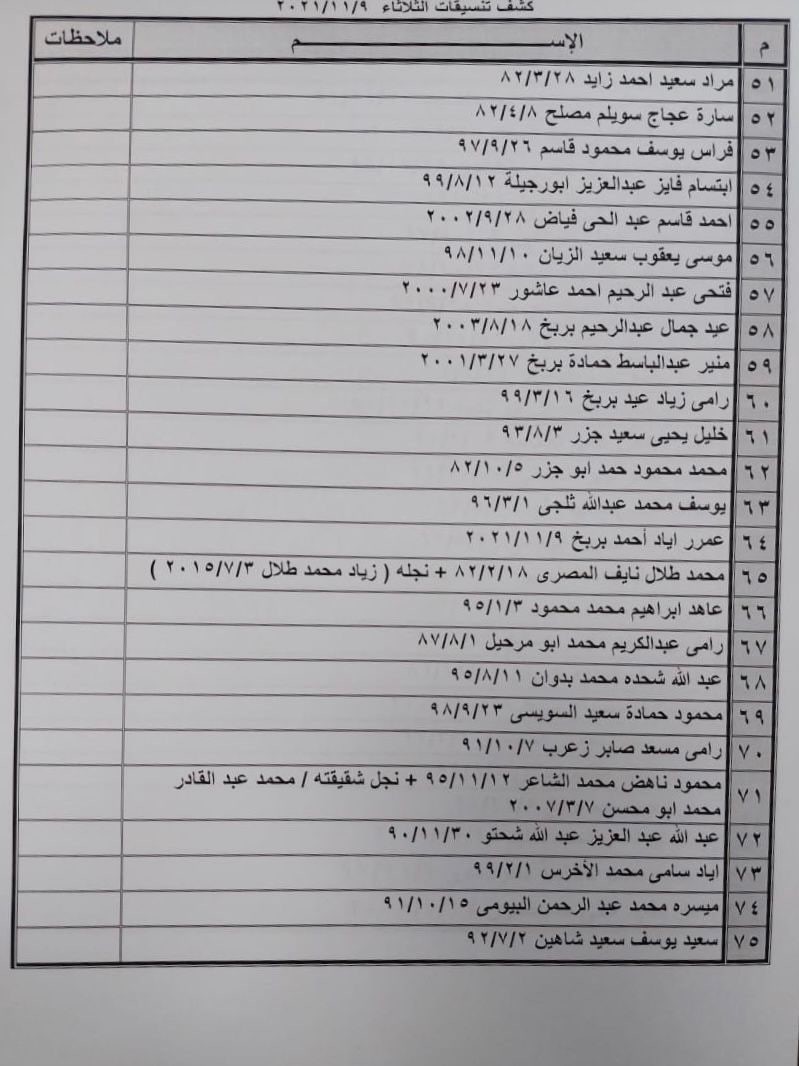 كشف تنسيقات الثلاثاء ٢٠٢١/١١/٩
م الإســـــــم ملاحظات
٥١ مراد سعيد احمد زايد ٨٢/٣/٢٨
٥٢ سارة عجاج سويلم مصلح ٨٢/٤/٨
٥٣ فراس يوسف محمود قاسم ٩٧/٩/٢٦
٥٤ ابتسام فايز عبدالعزيز ابورجيلة ٩٩/٨/١٢
٥٥ احمد قاسم عبد الحى فياض ٢٠٠٢/٩/٢٨
٥٦ موسى يعقوب سعيد الزيان ٩٨/١١/١٠
٥٧ فتحى عبد الرحيم احمد عاشور ٢٠٠٠/٧/٢٣
٥٨ عيد جمال عبدالرحيم بربخ ٢٠٠٣/٨/١٨
٥٩ منير عبدالباسط حمادة بربخ ٢٠٠١/٣/٢٧
٦٠ رامى زياد عيد بربخ ٩٩/٣/١٦
٦١ خليل يحيى سعيد جزر ٩٣/٨/٣
٦٢ محمد محمود حمد ابو جزر ٨٢/١٠/٥
٦٣ يوسف محمد عبدالله ثلجى ٩٦/٣/١
٦٤ عمرر اياد أحمد بربخ ٢٠٢١/١١/٩
٦٥ محمد طلال نايف المصرى ٨٢/٢/١٨ + نجله ( زياد محمد طلال ٢٠١٥/٧/٣ )
٦٦ عاهد ابراهيم محمد محمود ٩٥/١/٣
٦٧ رامى عبدالكريم محمد ابو مرحيل ٨٧/٨/١
٦٨ عبد الله شحده محمد بدوان ٩٥/٨/١١
٦٩ محمود حمادة سعيد السويسى ٩٨/٩/٢٣
٧٠ رامى مسعد صابر زعرب ٩١/١٠/٧
٧١ محمود ناهض محمد الشاعر ٩٥/١١/١٢ + نجل شقيقته / محمد عبد القادر
محمد ابو محسن ٢٠٠٧/٣/٧
٧٢ عبد الله عبد العزيز عبد الله شحتو ٩٠/١١/٣٠
٧٣ اياد سامى محمد الأخرس ٩٩/٢/١
٧٤ ميسره محمد عبد الرحمن البيومى ٩١/١٠/١٥
٧٥ سعيد يوسف سعيد شاهين ٩٢/٧/٢